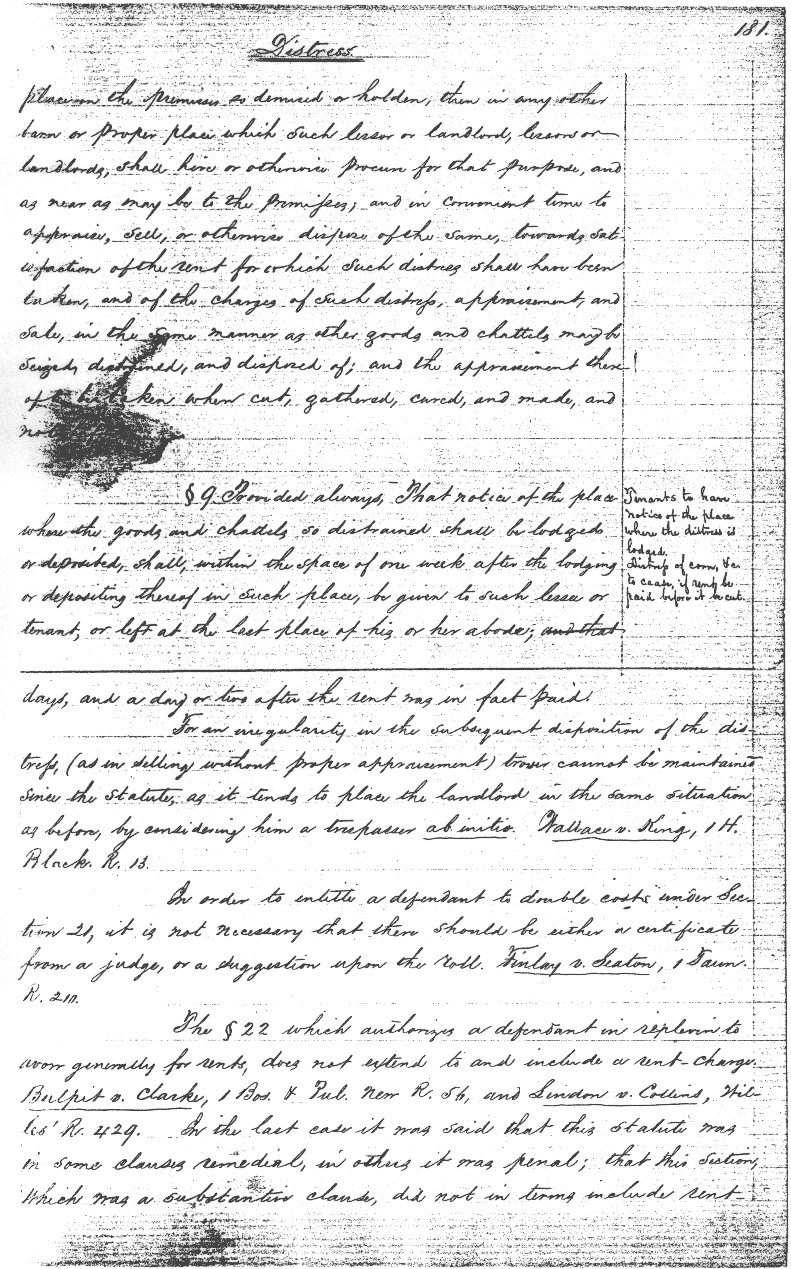 181.
Distress.
place on the premises so demised or holden, then in any other
barn or proper place which such lessor or landlord, lessors or
landlords, shall hire or otherwise procure for that purpose, and
as near as may be to the premises; and in convenient time to
appraise, sell, or otherwise dispose of the same, towards sat-
isfaction of the rent for which such distress shall have been
taken, and of the charges of such distress, appraisement, and
sale, in the same manner as other goods and chattels may be
seized, distrained, and disposed of; and the appraisement there-
of to be taken when cut, gathered, cured, and made, and
not
§ 9. Provided always, That notice of the place
where the goods and chattels so distrained shall be lodged
or deposited, shall, within the space of one week after the lodging
or depositing thereof in such place, be given to such lessee or
tenant, or left at the last place of his or her abode; and that
Tenants to have
notice of the place
where the distress is
lodged.
Distress of corn, &c.
to cease, if rent be
paid before it be cut.
days, and a day or two after the rent was in fact paid.
For an irregularity in the subsequent disposition of the dis-
tress, (as in selling without proper appraisement) trover cannot be maintained
since the statute, as it tends to place the landlord in the same situation
as before, by considering him a trespasser ab initio. Wallace v. King, 1 H.
Black. R. 13.
In order to entitle a defendant to double costs under Sec-
tion 21, it is not necessary that there should be either a certificate
from a judge, or a suggestion upon the roll. Finlay v. Seaton, 1 Taun.
R. 210.
The § 22 which authorizes a defendant in replevin to
avow generally for rents, does not extend to and include a rent-charge.
Bulpit v. Clarke, 1 Bos. & Pul. New R. 56, and Lindon v. Collins, Wil-
les' R. 429. In the last case it was said that this statute was
in some clauses remedial, in others it was penal; that this section,
which was a substantive clause, did not in terms include rent-